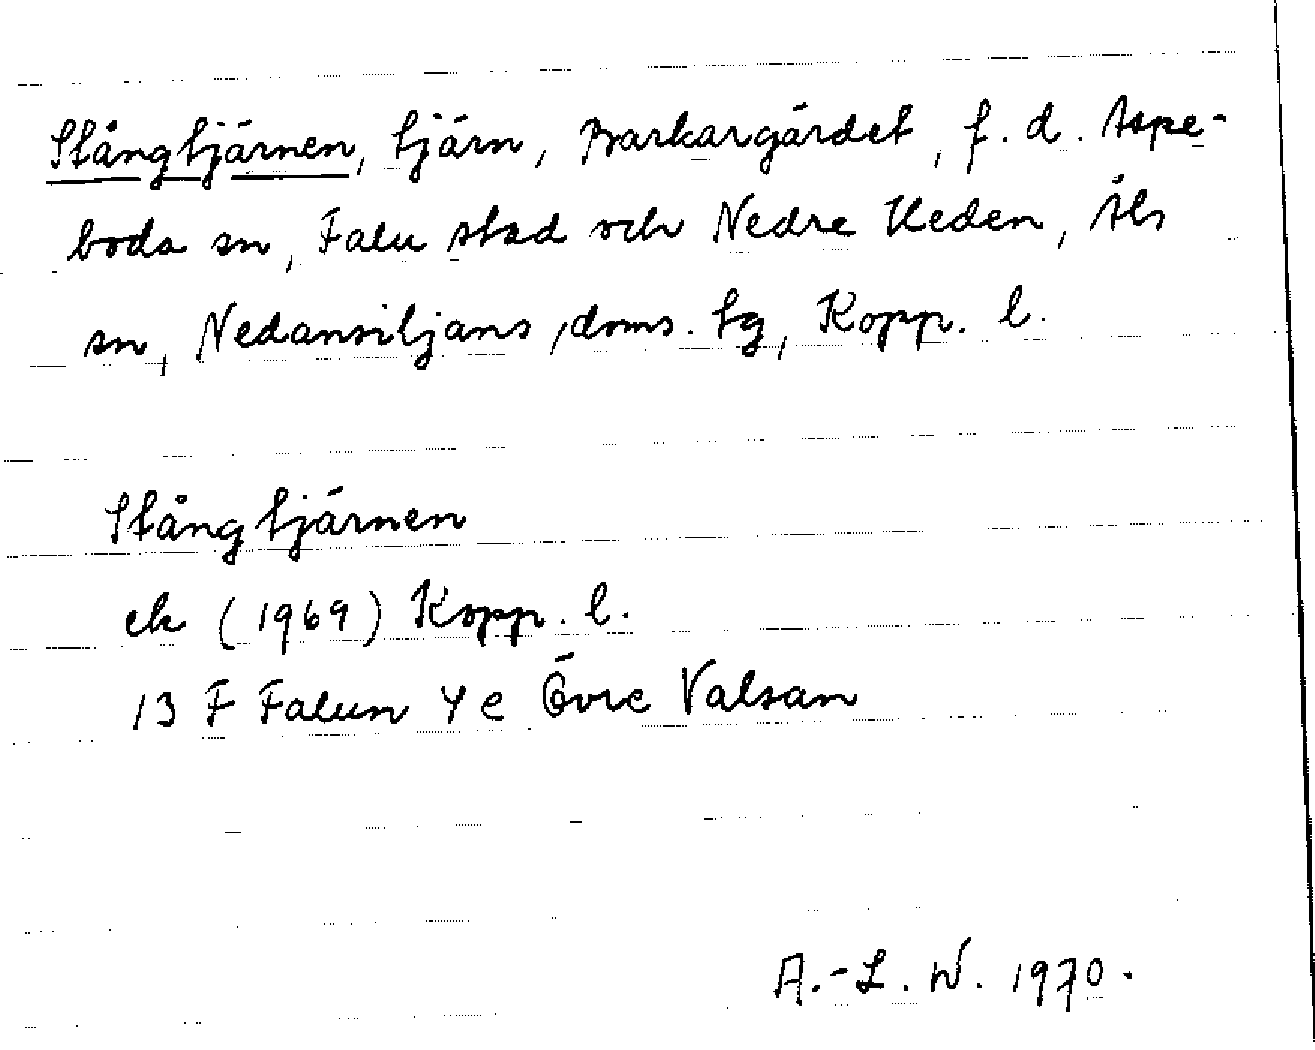 Stångtjärnen, tjärn, Barkargärdet, f. d. Aspe-
boda sn, Falu stad och Nedre Heden, Åls
sn, Nedansiljans doms. tg, Kopp. l.
Stångtjärnen
ek (1969) Kopp. l.
13 F Falun 4 e Övre Valsan
A.-L. W. 1970.